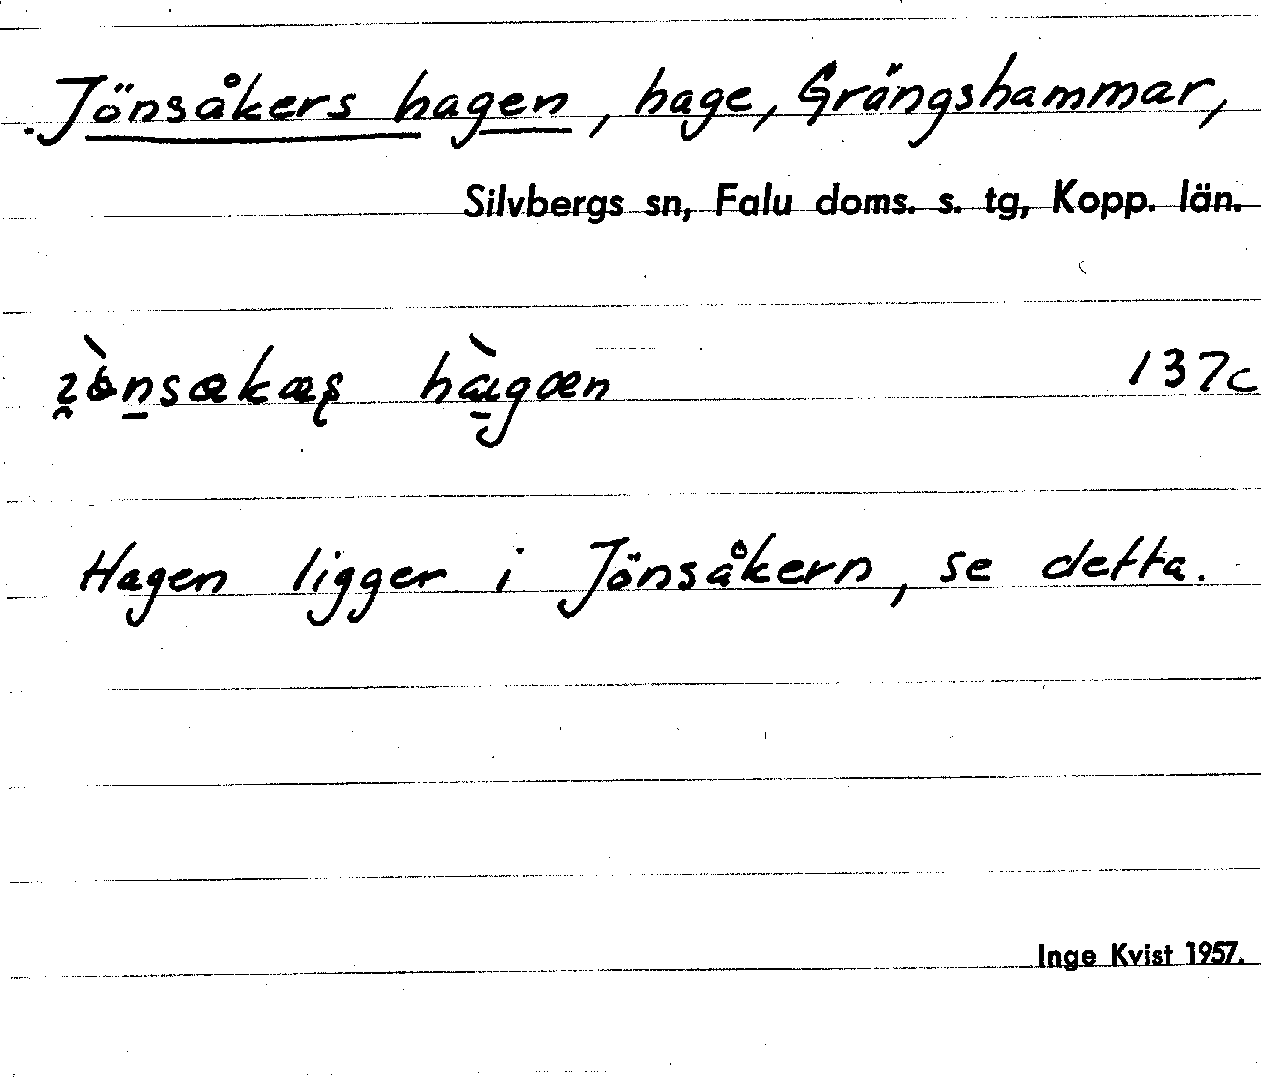 Jönsåkers hagen, hage, Grängshammar,
Silvbergs sn, Falu doms. s. tg, Kopp. län.
137c
Hagen ligger i Jönsåkern, se detta.
Inge Kvist 1957.